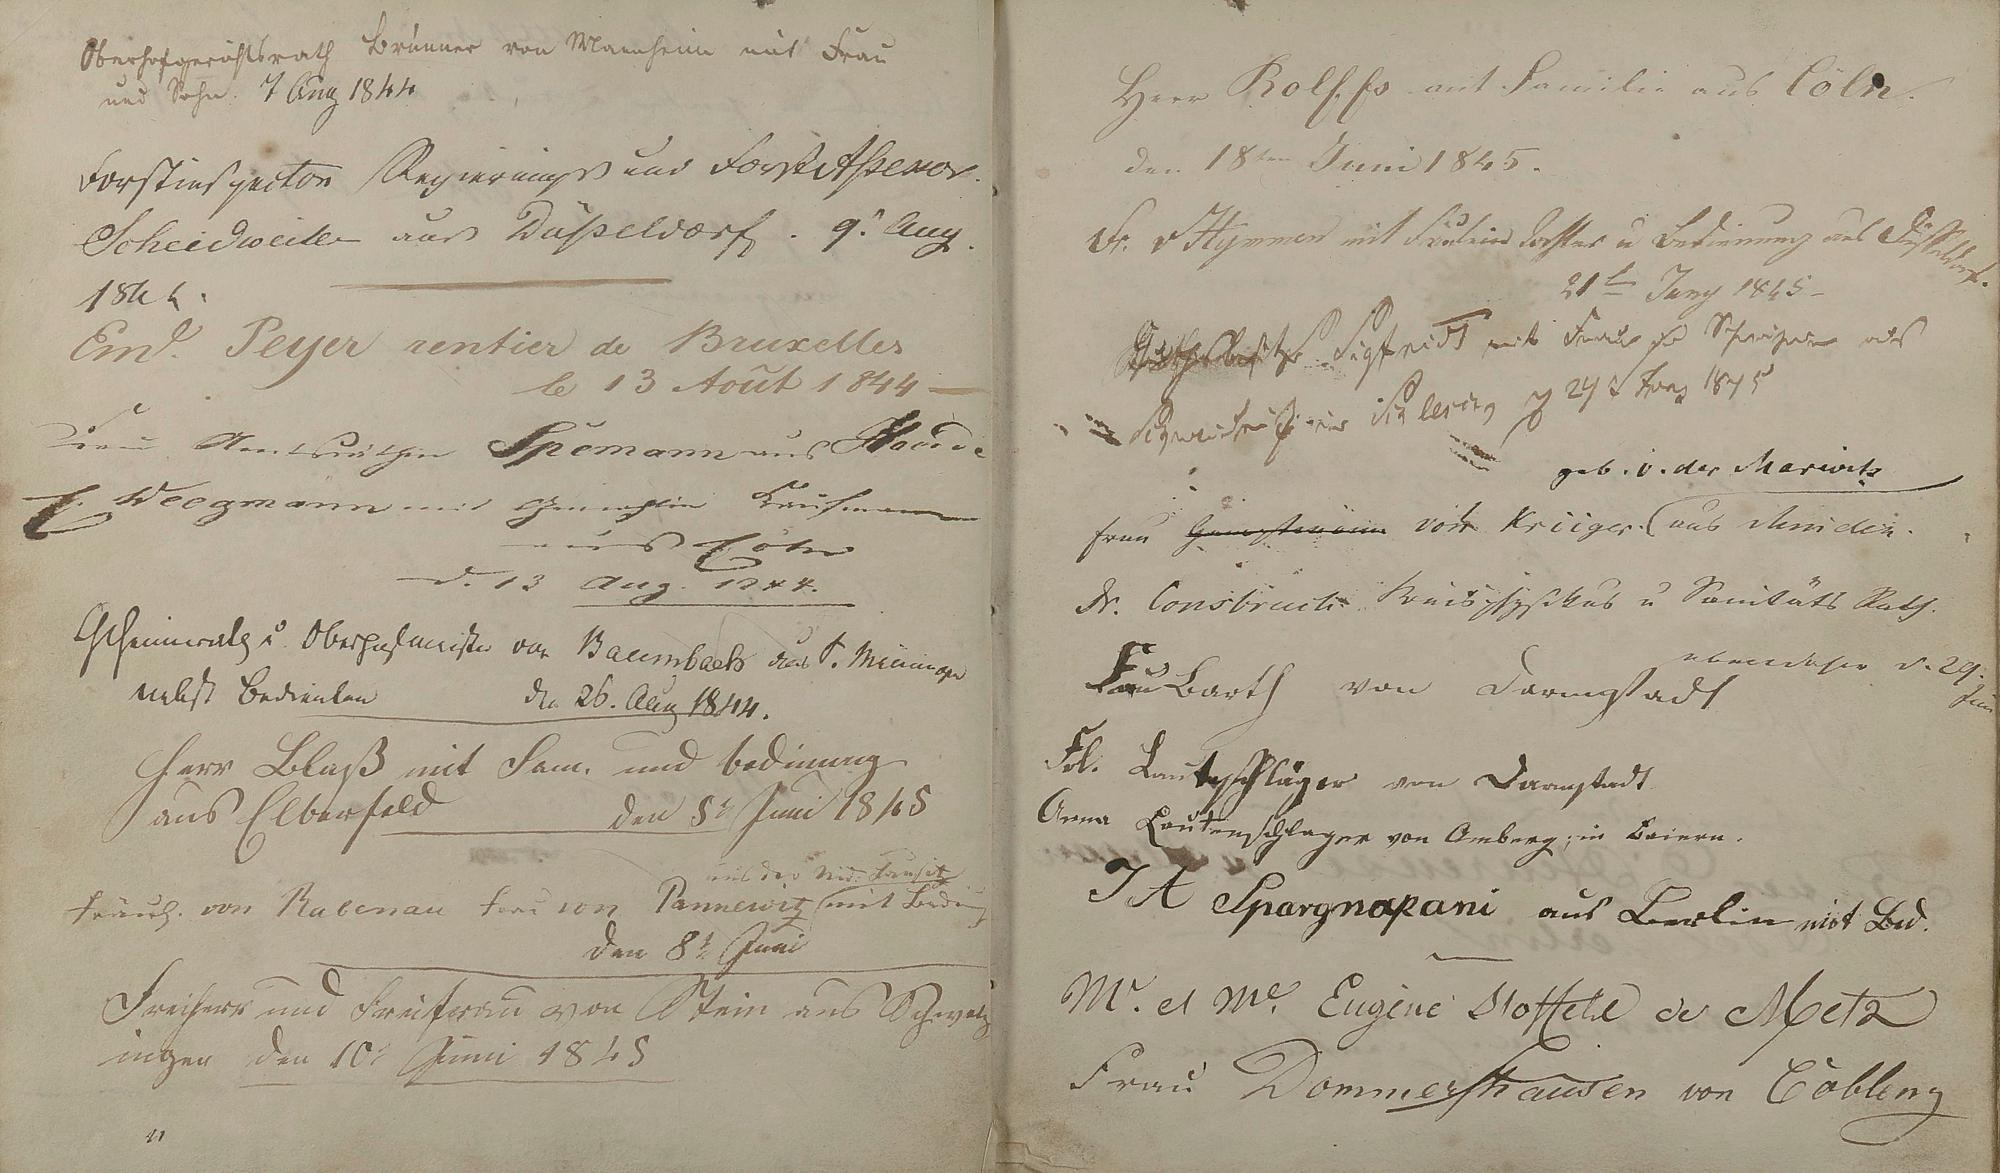 Oberhofgerichtsrath Brunner von Mannheim mit Frau
und Sohn. 7 Aug 1844
Forstinspector Regierungs und Forst Aßessor
Scheidweiler aus Düßeldorf. 9t Aug.
1844.
Emd. Peyer rentier de Bruxelles
le 13 Août 1844
Frau Spemann aus
Weegmann mit Gemahlin Kaufmann
aus Cöln
d. 13 Aug. 1844.
Geheimrath u. Oberhofmeister von Baumbach aus S. Meiningen
nebst Bedienten den 26. Aug 1844.
Herr Blaß mit Fam. und bedinung
aus Elberfeld den 5t Juni 1845
aus der Nied. Lausitz
Fräul. von Rabenau Frau von Pannewitz mit Bedieng
den 8t Juni
Freiherr und Freifrau von Stein aus Schwetz
ingen den 10t Juni 1845
11
Herr Rolffs mit Familie aus Cöln.
den 18ten Juni 1845.
Fr. v Hymmen mit Fräulein Tochter u Bedienung aus Düsseldorf.
21t Juny 1845
Sigfridt mit Frau Schwester aus
1845
geb. v. der Marwitz
Frau von Krüger (aus Minden.
Dr. Consbruch Kreisphysikus u Sanitäts Rath.
ebendaher d. 29. Juni
Frau Barth von Darmstadt
Frl. Lautenschläger von Darmstadt
Anna Lautenschlager von Amberg, in Baiern.
J A Spargnapani aus Berlin mit Bed.
Mr. et Me. Eugène Stoffel de Metz
Frau Dommershausen von Coblenz